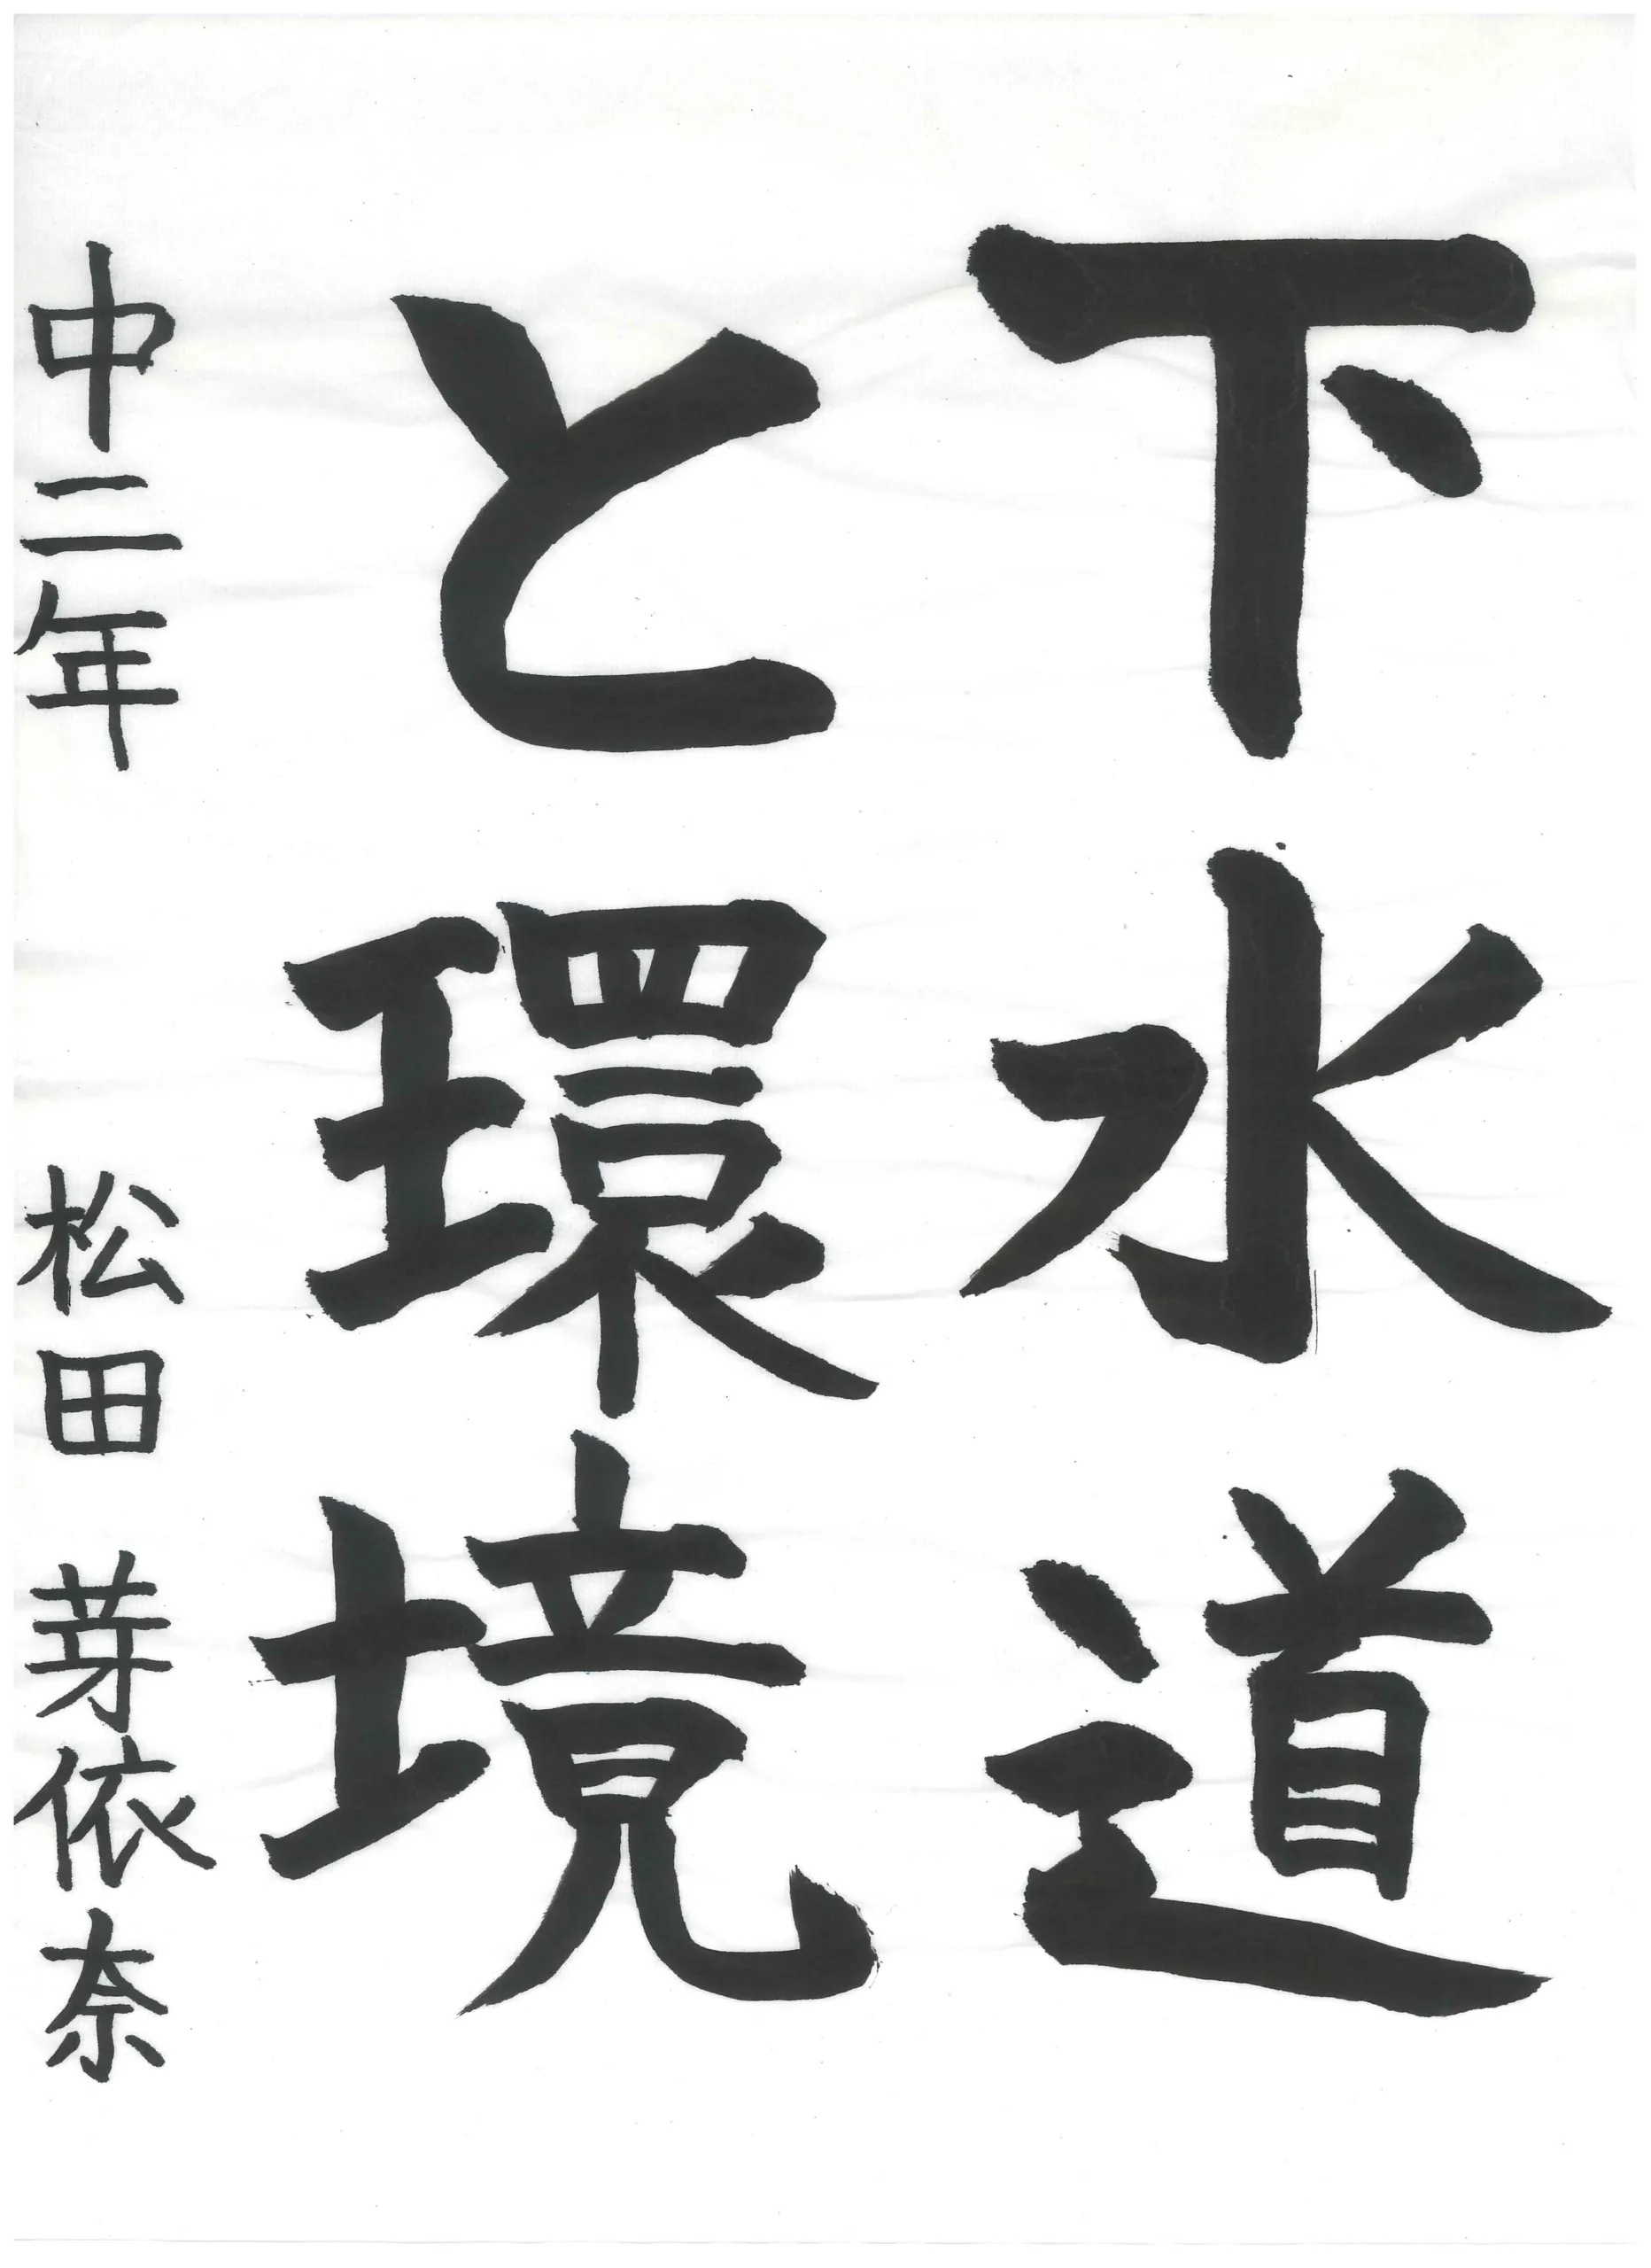 下水道
と環境
中二年 松田芽依奈